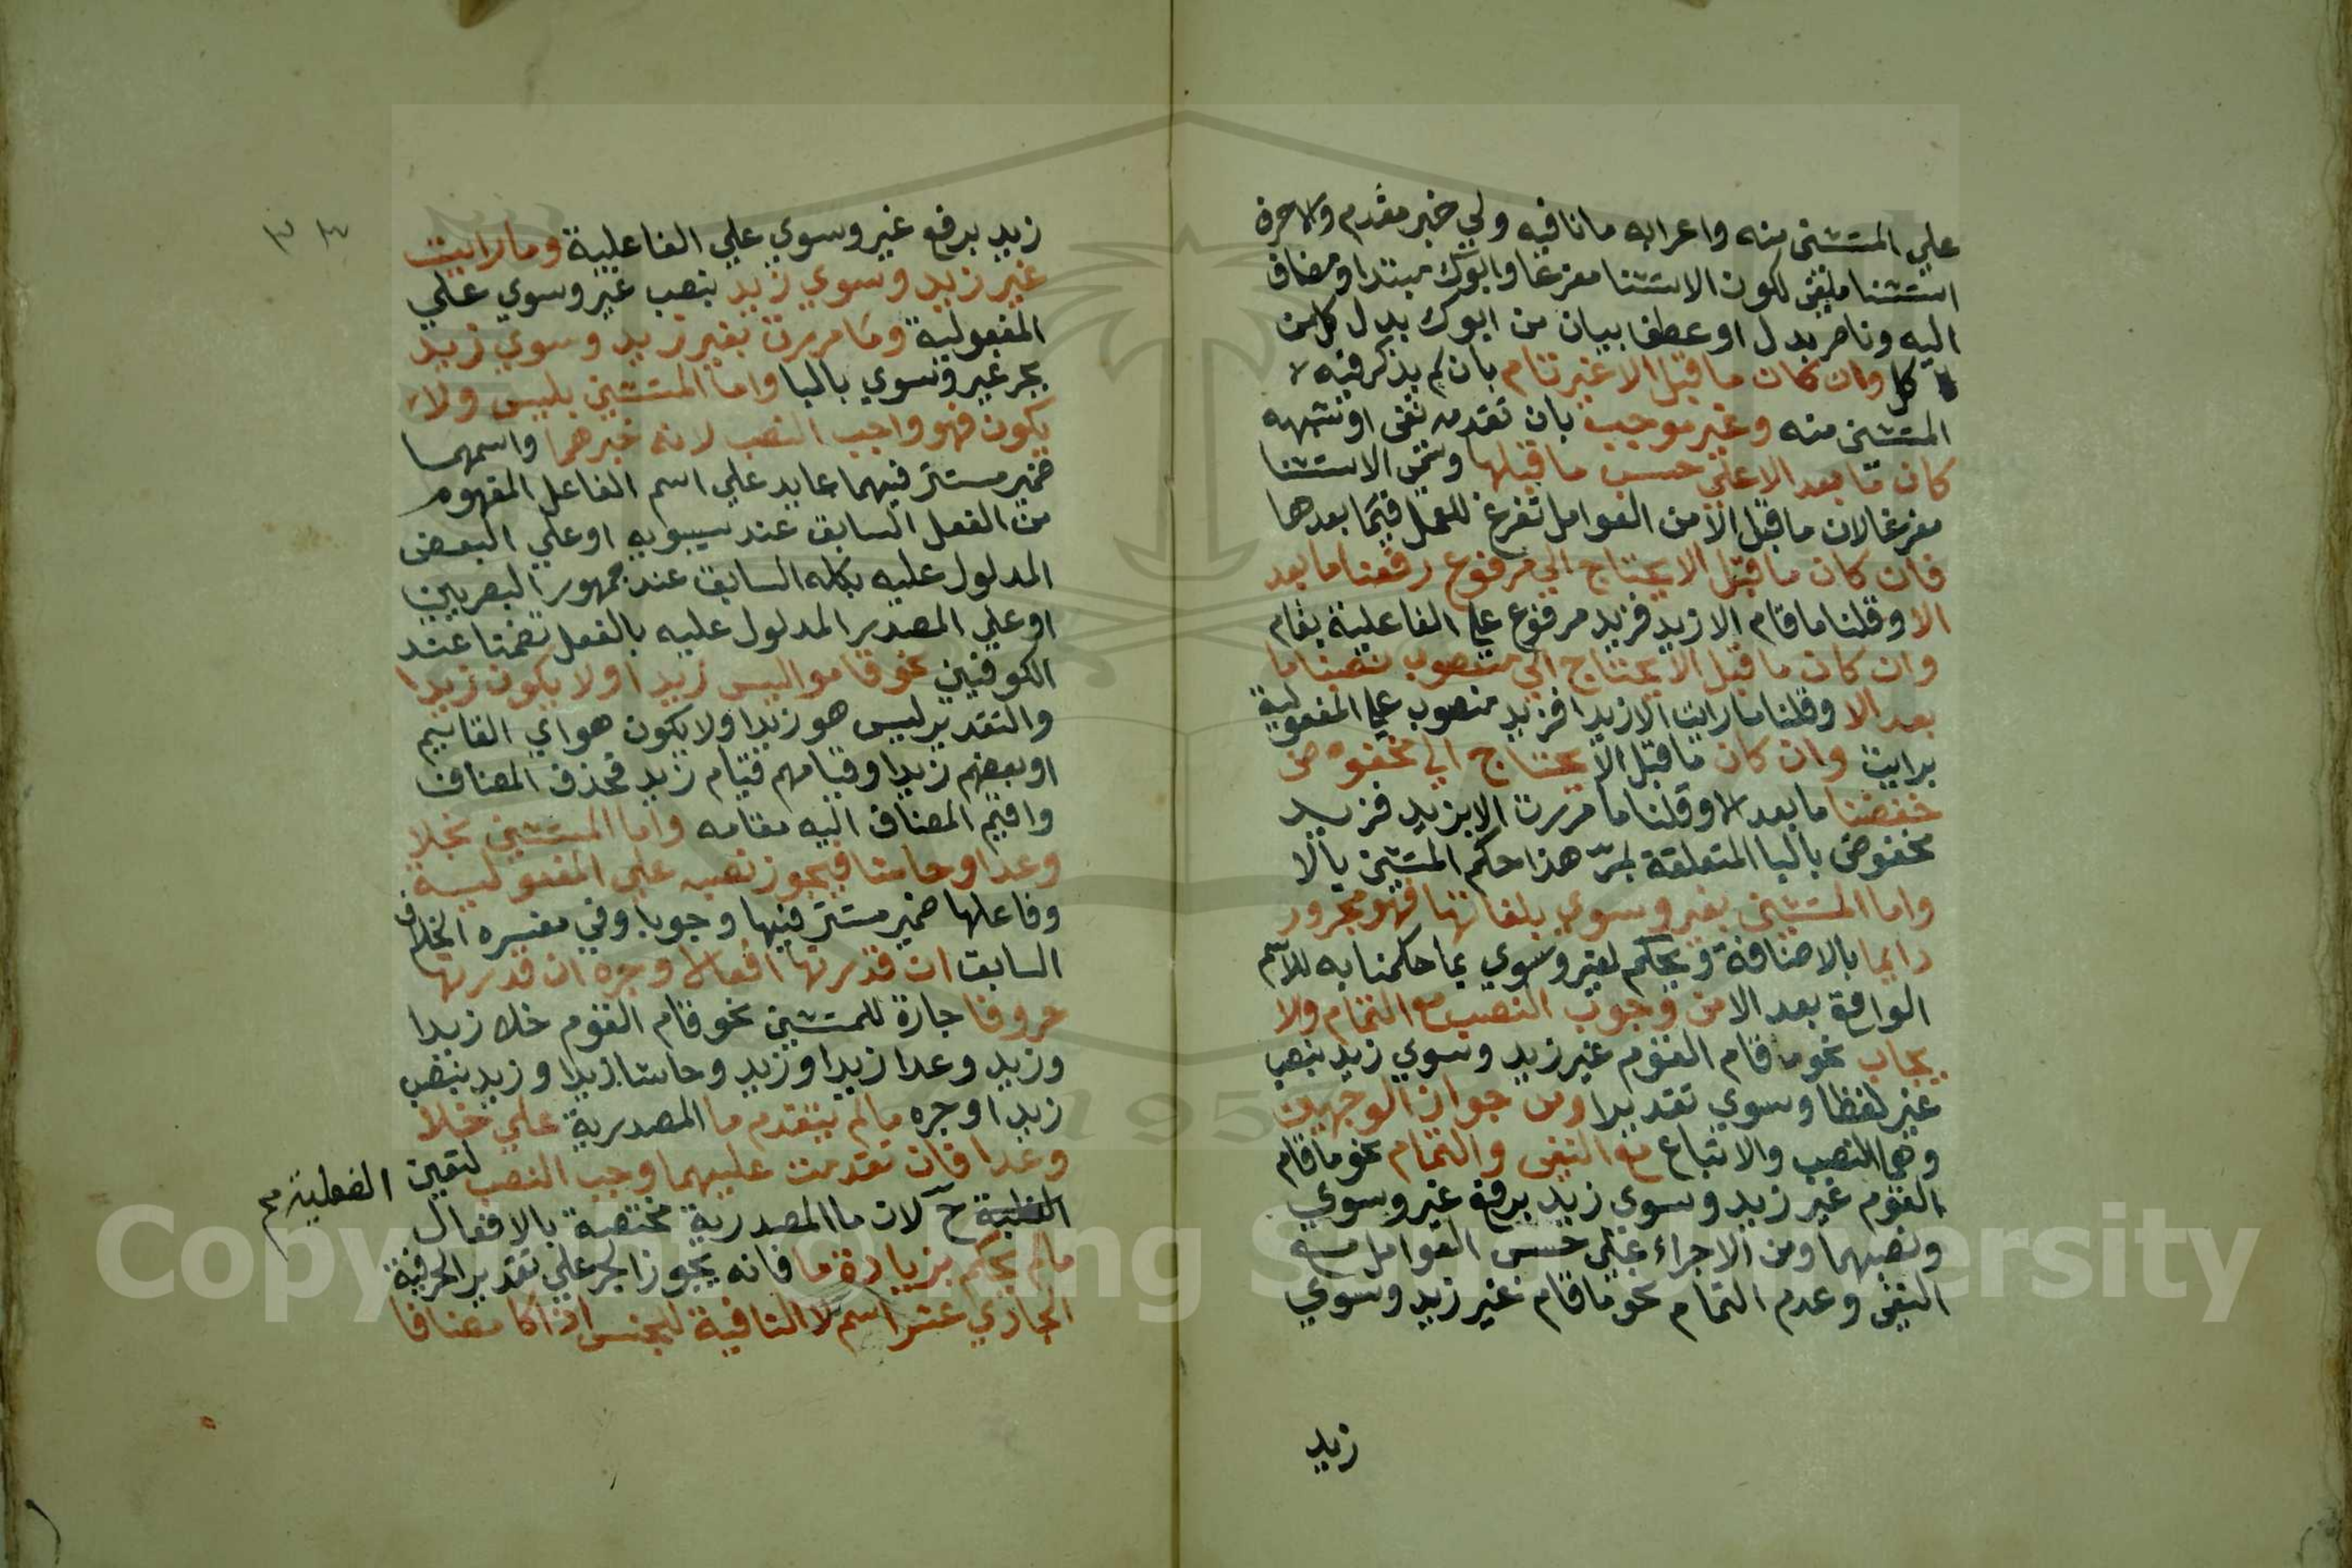 علي المستثنى منه واعرابه ما نافيه ولي خبر مقدم والاحرف
استثنا ملغى لكون الاستثنا مفرغا وابوك مبتدا ومضاف
اليه وناصر بدل او عطف بيان من ابوك بدل كل من
كل وان كان ما قبل الا غير تام بان لم يذكر فيه
المستثنى منه وغير موجب بان تقدمه نفى او شبهه
كان ما بعد الا علي حسب ما قبلها وسمى الاستثنا
مفرغا لان ما قبل الا من العوامل تفرغ للعمل فيما بعدها
فان كان ما قبل الا يحتاج الي مرفوع رفعنا ما بعد
الا وقلنا ما قام الا زيد فزيد مرفوع علي الفاعلية بقام
وان كان ما قبل الا يحتاج الي منصوب نصبنا ما
بعد الا وقلنا ما رايت الا زيدا فزيد منصوب علي المفعولية
برايت وان كان ما قبل الا يحتاج الي مخفوض
خفضنا ما بعد الا وقلنا ما مررت الا بزيد فزيد
مخفوض بالبا المتعلقة بمر هذا حكم المستثنى بالا
واما المستثنى بغير وسوي بلغاتها فهو مجرور
دايما بالاضافة ويحكم لغير وسوي بما حكمنا به للاسم
الواقع بعد الا من وجوب النصب مع التمام والا
يجاب نحو ما قام القوم غير زيد وسوي زيد بنصب
غير لفظا وسوي تقديرا ومن جواز الوجهين
وهما النصب والاتباع مع النفى والتمام نحو ما قام
القوم غير زيد وسوي زيد برفع غير وسوي
ونصبهما ومن الاجراء على حسب العوامل مع
النفى وعدم التمام نحو ما قام غير زيد وسوي
زيد
زيد برفع غير وسوي علي الفاعلية وما رايت
غير زيد وسوي زيد بنصب غير وسوي علي
المفعولية وما مررت بغير زيد وسوي زيد
بجر غير وسوي بالبا واما المستثنى بليس ولا
يكون فهو واجب النصب لانه خبرهما واسمهما
ضمير مستتر فيهما عايد علي اسم الفاعل المفهوم
من الفعل السابق عند سيبويه او علي البعض
المدلول عليه بكله السابق عند جمهور البصريين
او علي المصدر المدلول عليه بالفعل تضمنا عند
الكوفيين نحو قاموا ليس زيدا ولا يكون زيدا
والتقدير ليس هو زيدا ولا يكون هو اي القايم
او بعضهم زيدا وقيامهم قيام زيد فحذف المضاف
واقيم المضاف اليه مقامه واما المستثنى بخلا
وعدا وحاشا فيجوز نصبه علي المفعولية
وفاعلها ضمير مستتر فيها وجوبا وفي مفسره الخلاف
السابق ان قدرتها افعالا وجره ان قدرتها
حروفا جارة للمستثنى نحو قام القوم خلا زيدا
وزيد وعدا زيدا وزيد وحاشا زيدا وزيد بنصب
زيد او جره ما لم يتقدم ما المصدرية علي خلا
وعدا فان تقدمت عليهما وجب النصب لتعين الفعلية
ح لان ما المصدرية مختصة بالافعال
ما لم يحكم بزيادة ما فانه يجوز الجر علي تقدير الحرفية
الحادي عشر اسم لا النافية للجنس اذا كا مضافا
Copyright © King Saud University